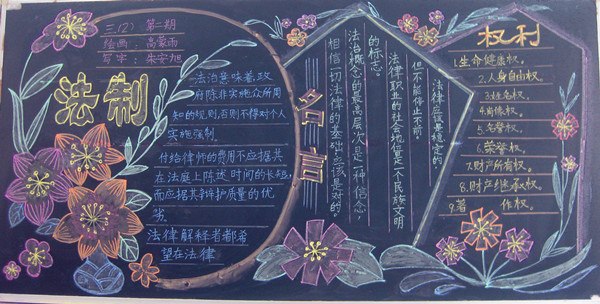 三(2) 第二期
绘画：高蒙雨
写字：朱安旭
法制
法治意味着,政
府除非实施众所周
知的规则,否则不得对个人
实施强制.
付给律师的费用不应据其
在法庭上陈述时间的长短,
而应据其辩护质量的优
劣.
法律解释者都希
望在法律
名言
法律应该是稳定的,
但不能停止不前。
法律职业的社会地位是一个民族文明
的标志。
法治概念的最高层次是一种信念,
相信一切法律的基础应该是对的。
权利
1.生命健康权。
2.人身自由权。
3.姓名权。
4.肖像权。
5.名誉权。
6.荣誉权。
7.财产所有权。
8.财产继承权。
9.著作权。